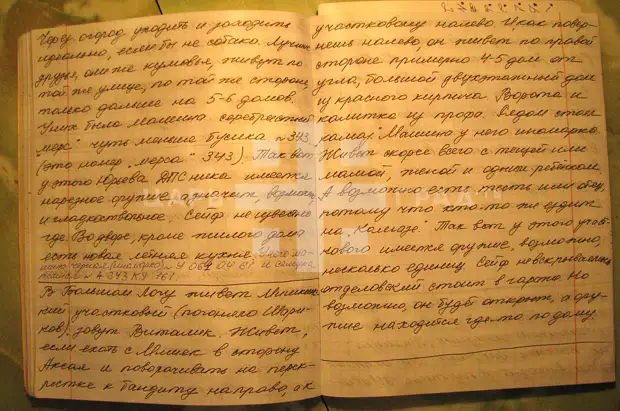 Через огород уходить и заходить
идеально, если бы не собака. Лучшие
друзья, они же кумовья, живут по
той же улице, по той же стороне,
только дальше на 5-6 домов.
У них была машина серебристый
"мерс" чуть меньше бусика. №343
(это номер "мерса" 343). Так вот
у этого Юрьева ДПСника имеется
нарезное оружие а значит, возможно
и гладкоствольное. Сейф не известно
где. Во дворе, кроме жилого дома
есть новая летняя кухня.
В Большом Логу живет
участковый (погоняло
зовут Виталик. Живет,
если ехать с Мишек в сторону
Аксая и поворачивать на перек-
рестке к Бандиту направо, а к
участковому налево. И как повер-
нешь налево, он живет по правой
стороне примерно 4-5 дом от
угла, большой двухэтажный дом
из красного кирпича. Ворота и
калитка из профа. Рядом стоит
камаз. Машина у него иномарка.
Живет скорее всего с тещей или
мамой, женой и одним ребенком.
А возможно есть тесть или отец,
потому что кто-то же ездит
на "Камазе". Так вот у этого участ-
кового имеется оружие, возможно,
несколько единиц. Сейф
стоит в гараже. Но
возможно, он будет открыт, а ору-
жие находится где-то по дому.